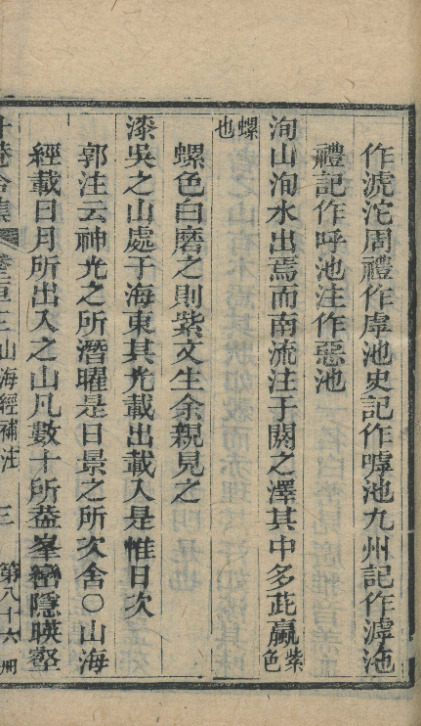 作滹沱周禮作虖池史記作嘑池九州記作滹池
禮記作呼池注作惡池
洵山洵水出焉而南流注于閼之澤其中多茈蠃紫色
螺也
螺色白磨之則紫文生余親見之
漆吳之山處于海東其光載出載入是惟日次
郭注云神光之所潛曜是日景之所次舍○山海
經載日月所出入之山凡數十所蓋峯巒隱映壑
升菴合集
山海經補注
三
第八十六冊